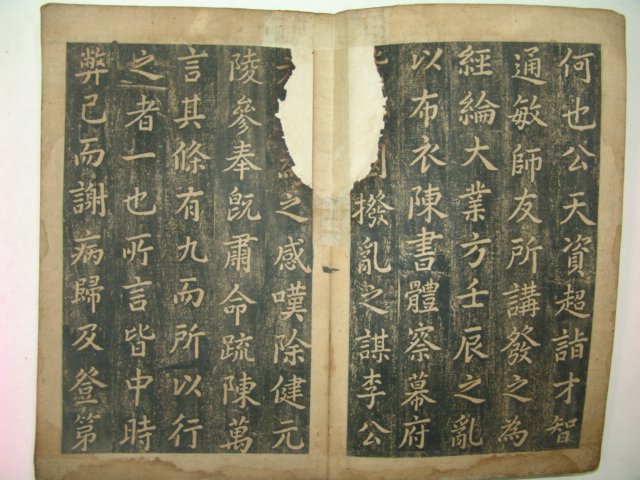 何也公天資超詣才智
通敏師友所講發之為
經綸大業方壬辰之亂
以布衣陳書體察幕府
撥亂之謀李公
之感嘆除健元
陵參奉旣肅命疏陳萬
言其條有九而所以行
之者一也所言皆中時
弊已而謝病歸及登第